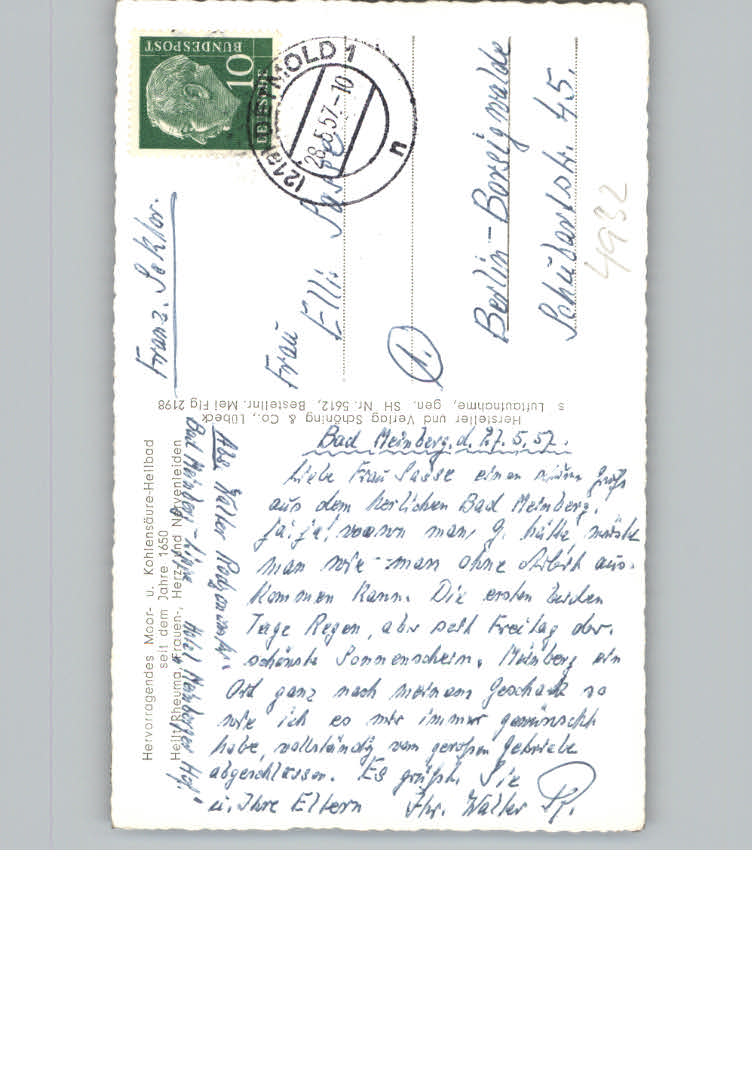 Bad Meinberg, d. 27.5.57.
Liebe Frau Sasse einen schönen Gruß
aus dem herlichen Bad Meinberg.
Ja! ja! wenn man, G. hätte, wüste
man wie man ohne Arbeit aus-
kommen kann. Die ersten beiden
Tage Regen, aber seit Freitag der
schönste Sonnenschein. Meinberg ein
Ort ganz nach meinem Geschack so
wie ich es mir immer gewünscht
habe, vollständig vom großen Getriebe
abgeschlossen. Es grüßt Sie
u. Ihre Eltern Ihr. Walter
Abs. Walter
Bad Meinberg-Lippe Hotel Meinberger Hof.
Hervorragendes Moor- u. Kohlensäure-Heilbad
seit dem Jahre 1650
Heilt Rheuma, Frauen-, Herz- und Nervenleiden
Hersteller und Verlag Schöning & Co., Lübeck
s Luftaufnahme, gen. SH Nr. 5612, Bestellnr. Mei Flg 2198
Franz. Sektor.
Frau
Elli Sasse
1.
Berlin-Borsigwalde
Schubartstr. 45.
4932
10
DEUTSCHE
BUNDESPOST
(21a) DETMOLD 1
28.5.57.-10
n